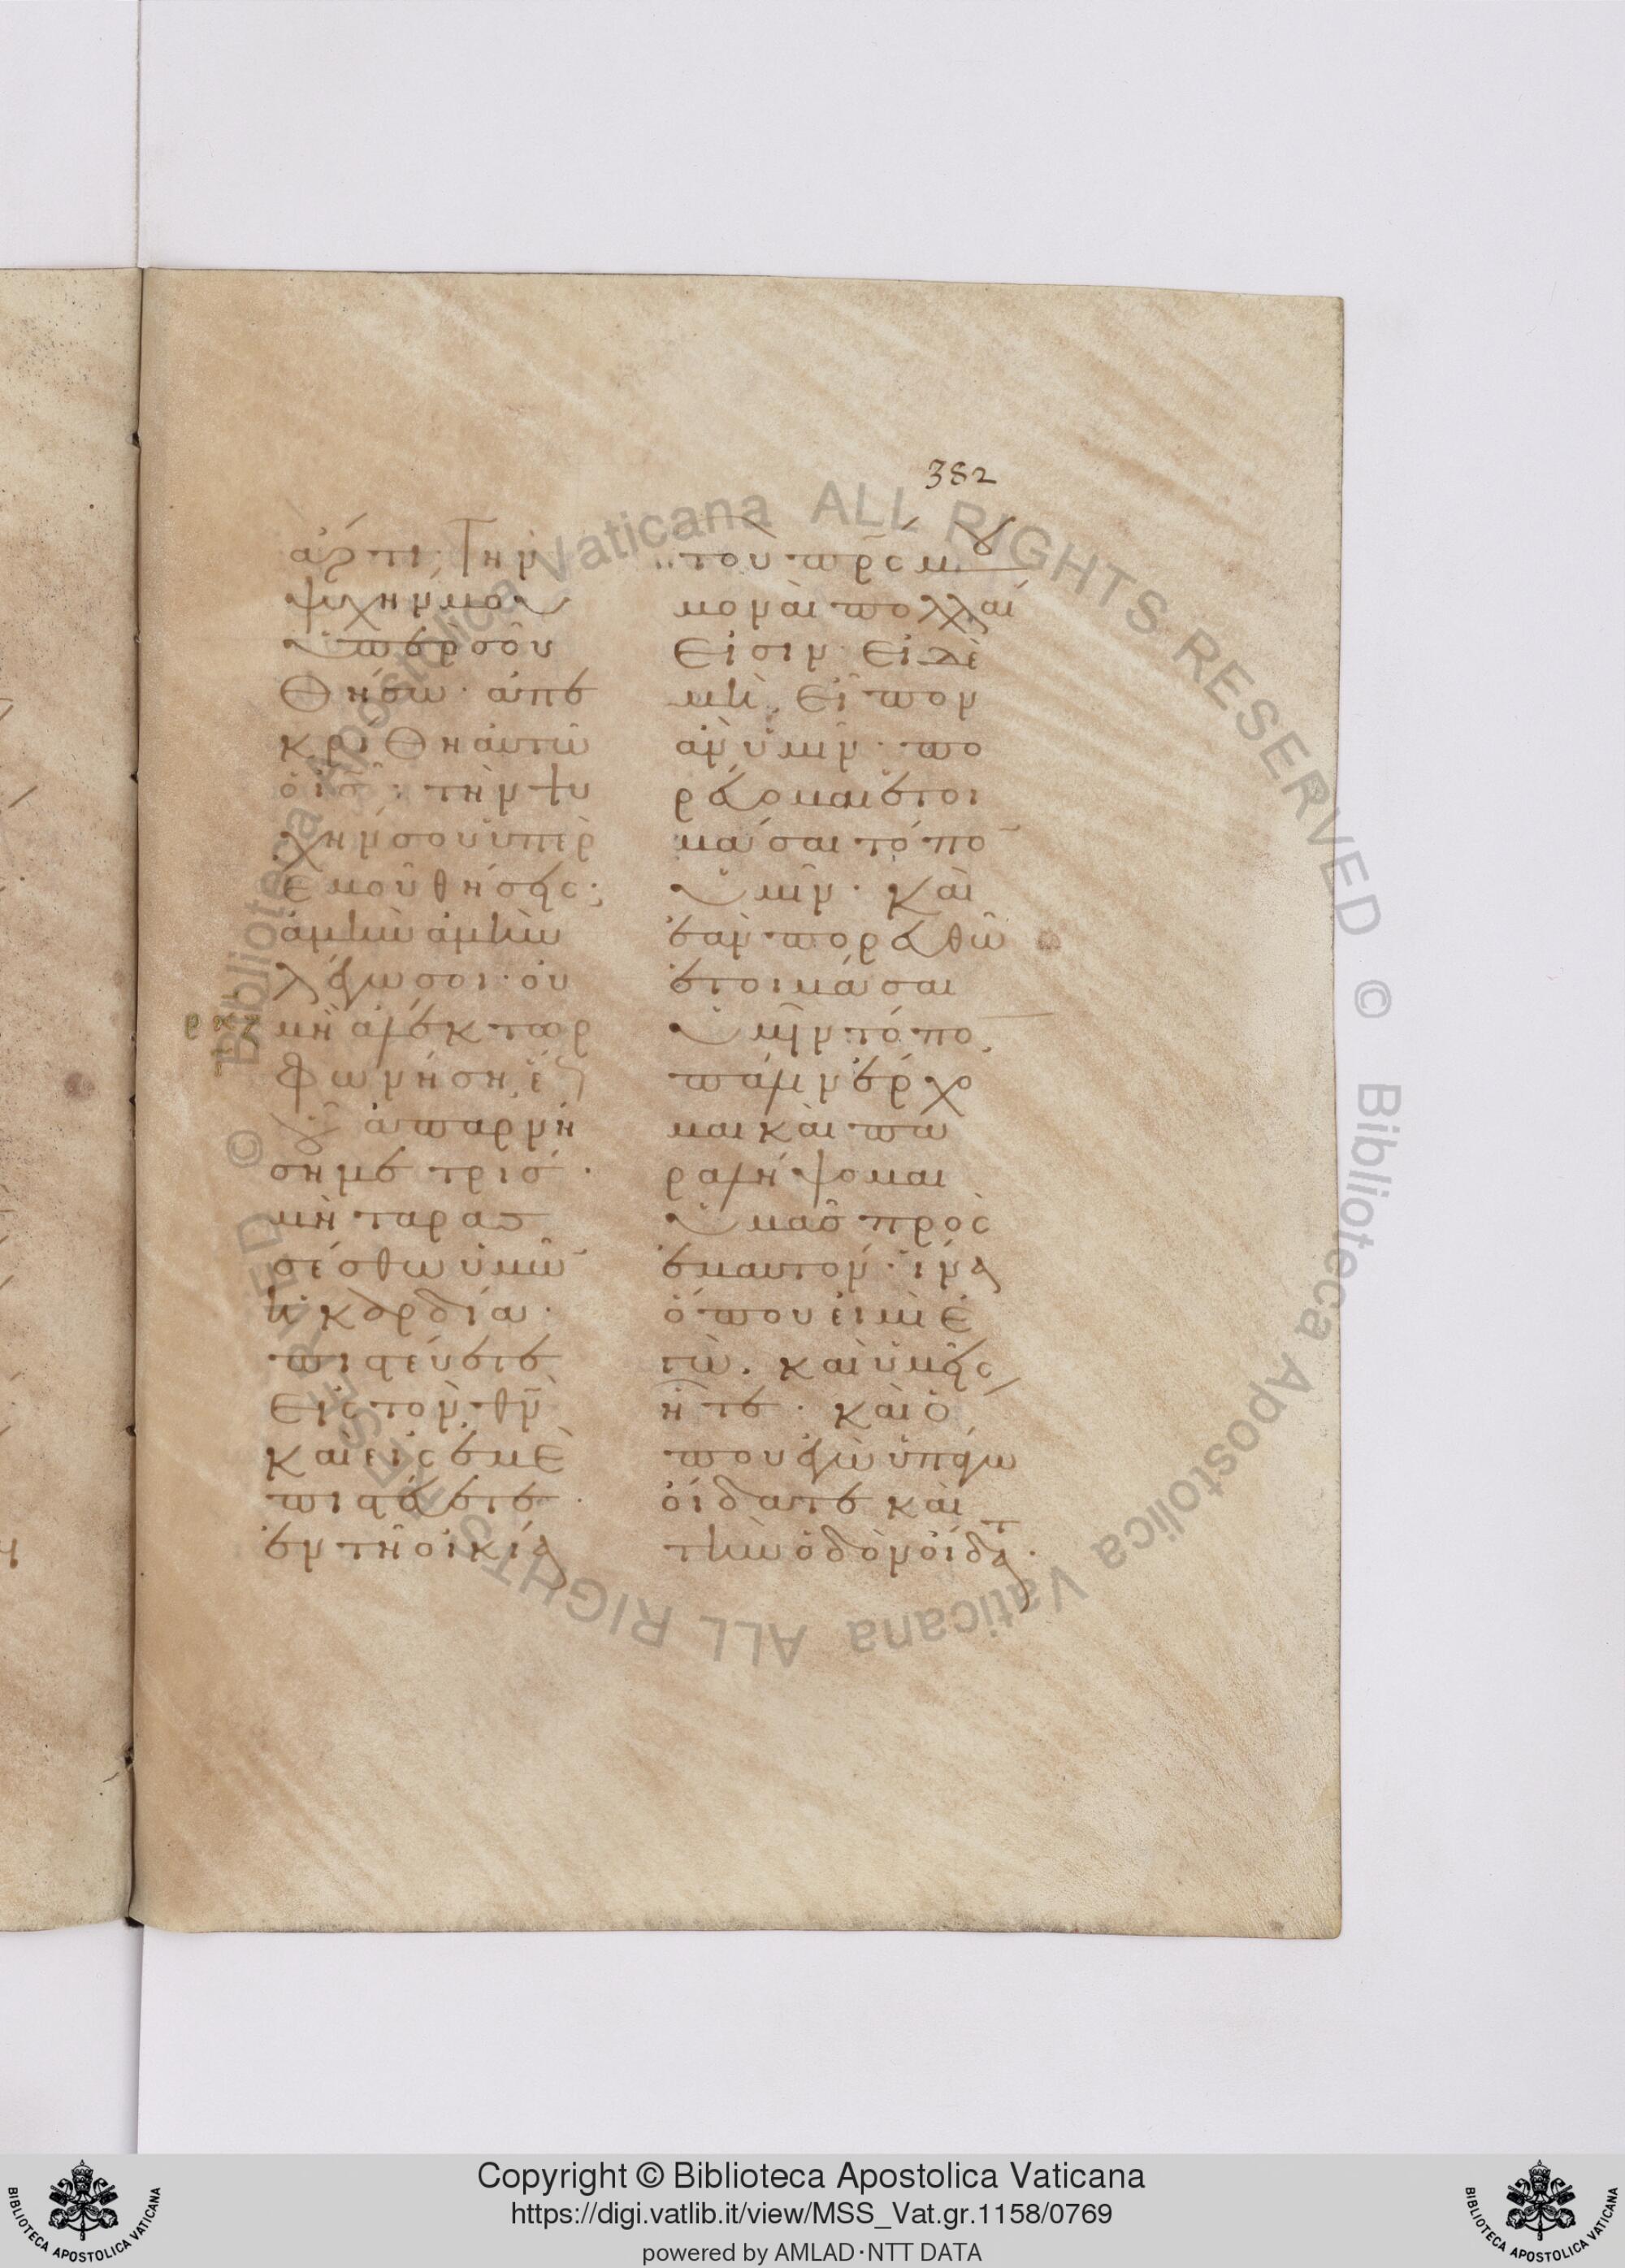 382
ἄρτι· τὴν
ψυχήν μου
ὑπὲρ σοῦ
θήσω· ἀπε
κρίθη αὐτῶ
ὁ ἰς̄· τὴν ψυ
χήν σου ὑπὲρ
ἐμοῦ θήσεις;
ἀμὴν ἀμὴν
λέγω σοι· οὐ
μὴ ἀλέκτωρ
φωνήση ἕως
οὗ ἀπαρνή
ση με τρίς·
μὴ ταρασ
σέσθω ὑμῶν
ἡ καρδία·
πιστεύετε
εἰς τὸν θν̄
καὶ εἰς ἐμὲ
πιστεύετε·
ἐν τῆ οἰκία
τοῦ πρς̄ μου
μοναὶ πολλαί
εἰσιν· εἰ δὲ
μὴ, εἶπον
ἂν ὑμῖν· πο
ρεύομαι ἑτοι
μάσαι τόπον
ὑμῖν· καὶ
ἐὰν πορευθῶ
ἑτοιμάσαι
ὑμῖν τόπον,
πάλιν ἔρχο
μαι καὶ πα
ραλήψομαι
ὑμᾶς πρὸς
ἐμαυτόν· ἵνα
ὅπου εἰμὶ ἐ
γὼ. καὶ ὑμεῖς
ἦτε· καὶ ὅ
που ἐγὼ ὑπάγω
οἴδατε καὶ
τὴν ὁδὸν οἴδατε·
Biblioteca Apostolica Vaticana ALL RIGHTS RESERVED © Biblioteca Apostolica Vaticana ALL RIGHTS RESERVED ©
Copyright © Biblioteca Apostolica Vaticana
https://digi.vatlib.it/view/MSS_Vat.gr.1158/0769
powered by AMLAD·NTT DATA
BIBLIOTECA APOSTOLICA VATICANA
BIBLIOTECA APOSTOLICA VATICANA